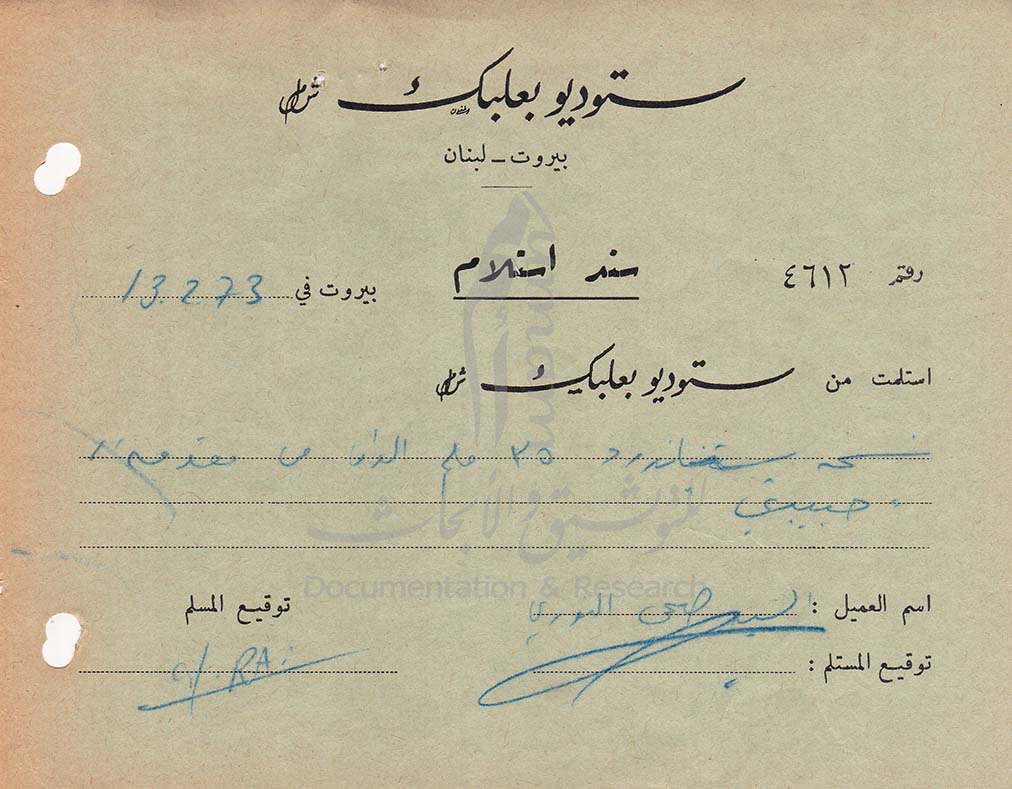 ستوديو بعلبك ش م ل
بيروت - لبنان
رقم ٤٦١٢
سند استلام
بيروت في 13.2.73
استلمت من ستوديو بعلبك ش م ل
نسخة ستاندرد ٣٥ ملم الوان من مقدمة
حبيبتي
اسم العميل : السيد صبحي النوري
توقيع المسلم
توقيع المستلم :
umam
للتوثيق والأبحاث
Documentation & Research